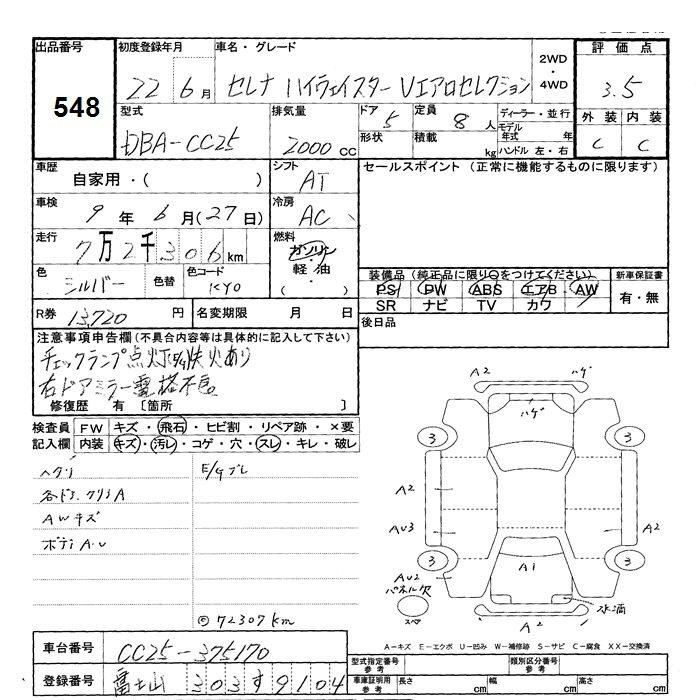 出品番号 初度登録年月 車名・グレード 2WD・4WD 評価点
548 22年6月 セレナ ハイウェイスター Vエアロセレクション 3.5
型式 排気量 ドア 定員 ディーラー・並行 外装 内装
DBA-CC25 2000cc 5 8人 モデル年式 年 C C
形状 積載 kg ハンドル 左・右
車歴 シフト セールスポイント (正常に機能するものに限ります)
自家用・( ) AT
車検 冷房
9年6月(27日) AC
走行 燃料
7万2千306km ガソリン・軽油・( )
色 色替 色コード 装備品 (純正品に限り○をつけてください) 新車保証書
シルバー KY0 PS PW ABS エアB AW 有・無
SR ナビ TV カワ
R券 13,720円 名変期限 月 日 後日品
注意事項申告欄 (不具合内容等は具体的に記入して下さい)
チェックランプ点灯 火あり
右ドアミラー電格不良
修復歴 有 〔箇所 〕
検査員 FW キズ・飛石・ヒビ割・リペア跡・×要
記入欄 内装 キズ・汚レ・コゲ・穴・スレ・キレ・破レ
ヘクリ E/Gブレ
各ドア. クリアA
AWキズ
ボディA.U
72307km
A2 ハゲ
ハゲ
3 3
A2
AU3 A2
3 3
A1
AU2
パネル欠
スペ
水滴
A2
A-キズ E-エクボ U-凹み W-補修跡 S-サビ C-腐食 XX-交換済
車台番号 CC25-375170
型式指定番号 参考 類別区分番号 参考
登録番号 富士山 303す9104
車庫証明用 参考 長さ cm 幅 cm 高さ cm